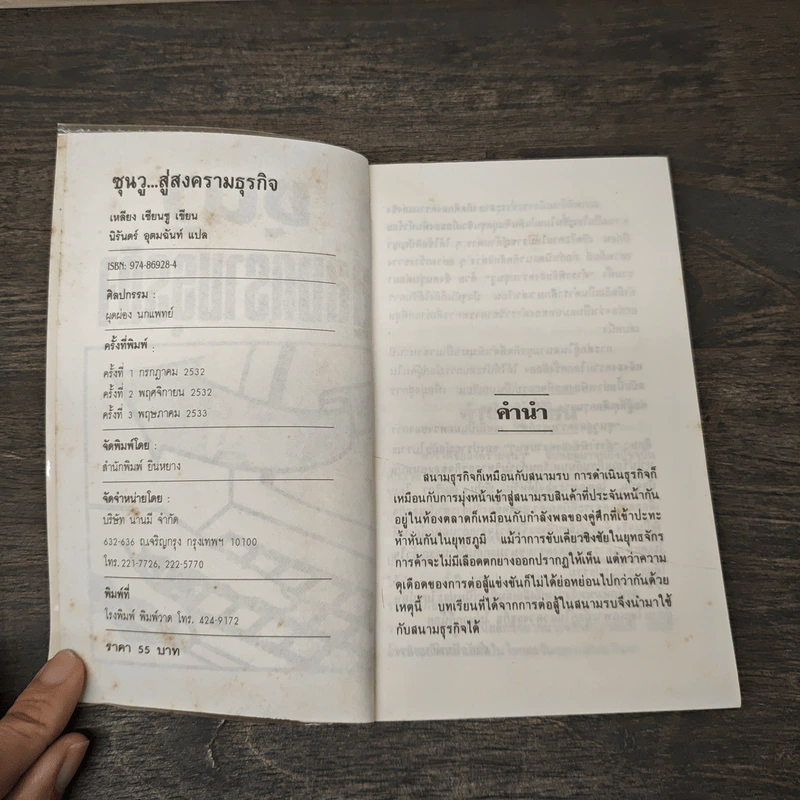 ซุนวู...สู่สงครามธุรกิจ
เหลียง เซียนซู เขียน
นิรันดร์ อุดมฉันท์ แปล
ISBN: 974-86928-4
ศิลปกรรม :
ผุดผ่อง นกแพทย์
ครั้งที่พิมพ์ :
ครั้งที่ 1 กรกฎาคม 2532
ครั้งที่ 2 พฤศจิกายน 2532
ครั้งที่ 3 พฤษภาคม 2533
จัดพิมพ์โดย :
สำนักพิมพ์ ยินหยาง
จัดจำหน่ายโดย :
บริษัท นานมี จำกัด
632-636 ถ.เจริญกรุง กรุงเทพฯ 10100
โทร.221-7726, 222-5770
พิมพ์ที่
โรงพิมพ์ พิมพ์วาด โทร. 424-9172
ราคา 55 บาท
คำนำ
สนามธุรกิจก็เหมือนกับสนามรบ การดำเนินธุรกิจก็
เหมือนกับการมุ่งหน้าเข้าสู่สนามรบสินค้าที่ประจันหน้ากัน
อยู่ในท้องตลาดก็เหมือนกับกำลังพลของคู่ศึกที่เข้าปะทะ
ห้ำหั่นกันในยุทธภูมิ แม้ว่าการขับเคี่ยวชิงชัยในยุทธจักร
การค้าจะไม่มีเลือดตกยางออกปรากฏให้เห็น แต่ทว่าความ
ดุเดือดของการต่อสู้แข่งขันก็ไม่ได้ย่อหย่อนไปกว่ากันด้วย
เหตุนี้ บทเรียนที่ได้จากการต่อสู้ในสนามรบจึงนำมาใช้
กับสนามธุรกิจได้